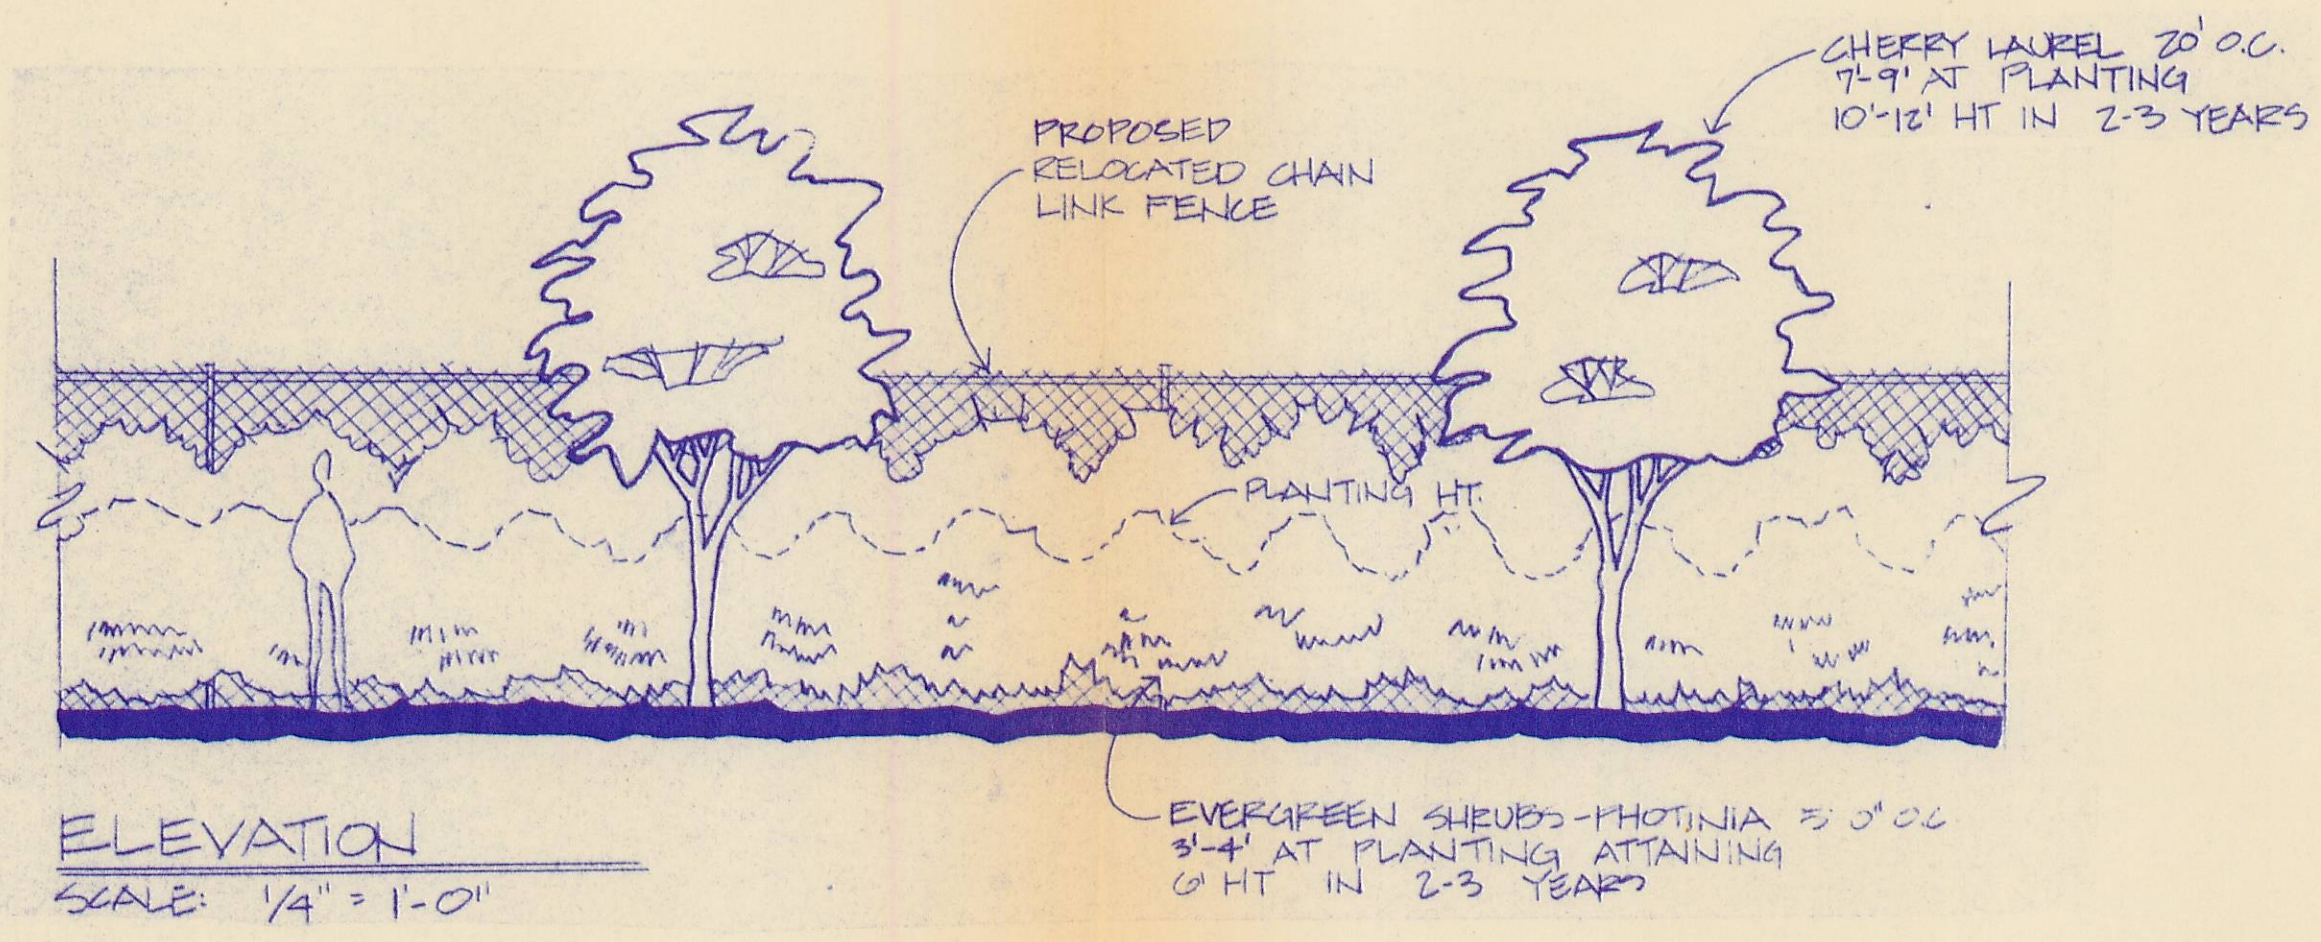 CHERRY LAUREL 20' O.C.
7'-9' AT PLANTING
10'-12' HT IN 2-3 YEARS
PROPOSED
RELOCATED CHAIN
LINK FENCE
PLANTING HT.
EVERGREEN SHRUBS-PHOTINIA 5'0" O.C
3'-4' AT PLANTING ATTAINING
6' HT IN 2-3 YEARS
ELEVATION
SCALE: 1/4" = 1'-0"